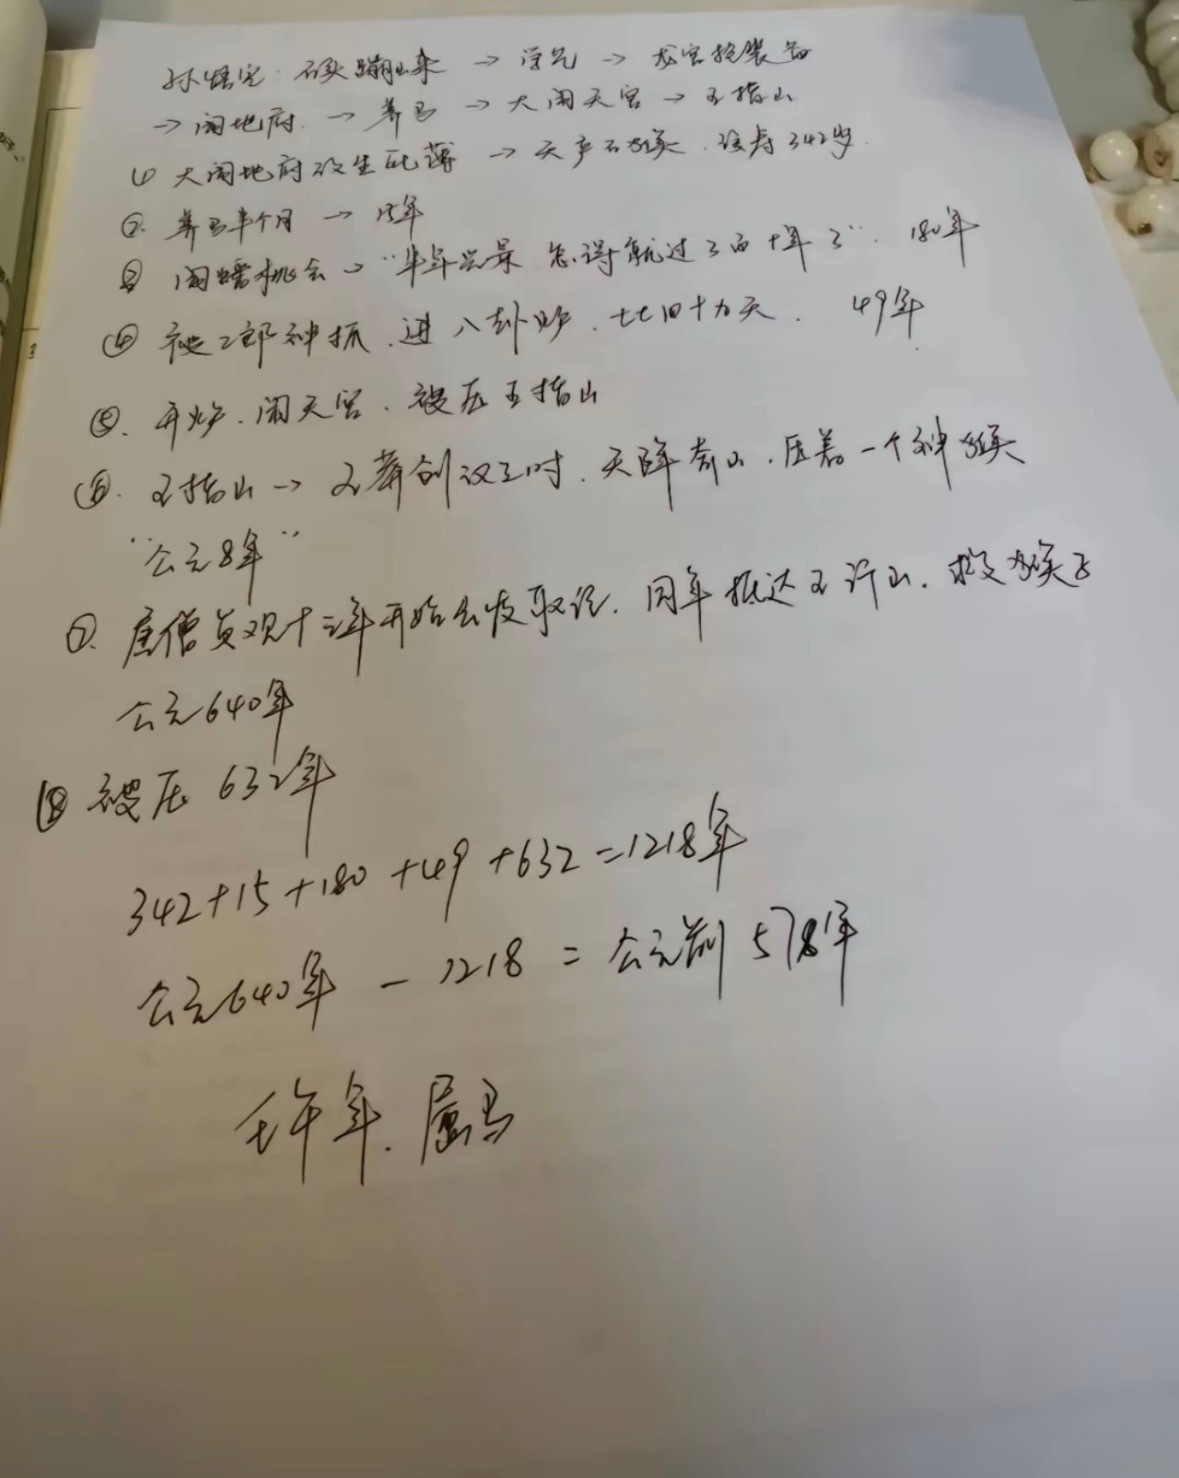 孙悟空：石头蹦出来 → 学艺 → 龙宫抢装备
→ 闹地府 → 养马 → 大闹天宫 → 五指山
① 大闹地府改生死薄 → 天产石猴．该寿342岁．
②. 养马半个月 → 15年
③ 闹蟠桃会 → “半年光景 怎得就过了百十年了”． 180年
④ 被二郎神抓．进八卦炉．七七四十九天． 49年
⑤. 开炉．闹天宫．被压五指山
⑥. 五指山 → 王莽创汉之时．天降奇山．压着一个神猴
“公元8年”
⑦. 唐僧贞观十三年开始出发取经．同年抵达五行山．救猴子
公元640年
⑧ 被压 632年
342+15+180+49+632=1218年
公元640年 － 1218 = 公元前578年
壬午年．属马